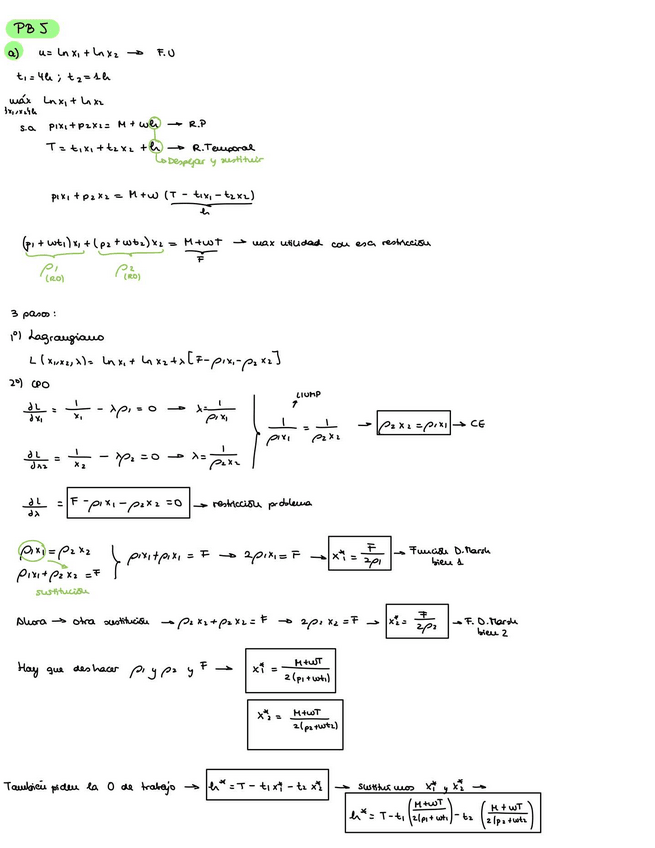 PB 5
a) u = ln x₁ + ln x₂ → F.U
t₁ = 4h ; t₂ = 1h
máx ln x₁ + ln x₂
{x₁,x₂,h}
s.a p₁x₁ + p₂x₂ = M + wh → R.P
T = t₁x₁ + t₂x₂ + h → R.Temporal
↳ Despejar y sustituir
p₁x₁ + p₂x₂ = M + w (T − t₁x₁ − t₂x₂)
h
(p₁ + wt₁) x₁ + (p₂ + wt₂) x₂ = M + wT → max utilidad con esa restricción
ρ₁ ρ₂ F
(RO) (RO)
3 pasos:
1º) Lagrangiano
L (x₁,x₂,λ) = ln x₁ + ln x₂ + λ [F − ρ₁x₁ − ρ₂x₂]
2º) CPO
∂L/∂x₁ = 1/x₁ − λρ₁ = 0 → λ = 1/ρ₁x₁
∂L/∂x₂ = 1/x₂ − λρ₂ = 0 → λ = 1/ρ₂x₂
1/ρ₁x₁ = 1/ρ₂x₂ → ρ₂x₂ = ρ₁x₁ → CE
∂L/∂λ = F − ρ₁x₁ − ρ₂x₂ = 0 → restricción problema
ρ₁x₁ = ρ₂x₂
ρ₁x₁ + ρ₂x₂ = F
sustitución
ρ₁x₁ + ρ₁x₁ = F → 2ρ₁x₁ = F → x₁* = F/2ρ₁ → Función D.Marsh
bien 1
Ahora → otra sustitución → ρ₂x₂ + ρ₂x₂ = F → 2ρ₂x₂ = F → x₂* = F/2ρ₂ → F. D. Marsh
bien 2
Hay que deshacer ρ₁ y ρ₂ y F → x₁* = M+wT/2(p₁+wt₁)
x₂* = M+wT/2(p₂+wt₂)
También piden la O de trabajo → h* = T − t₁x₁* − t₂x₂* → sustituimos x₁* y x₂* →
h* = T − t₁ (M+wT/2(p₁+wt₁)) − t₂ (M+wT/2(p₂+wt₂))